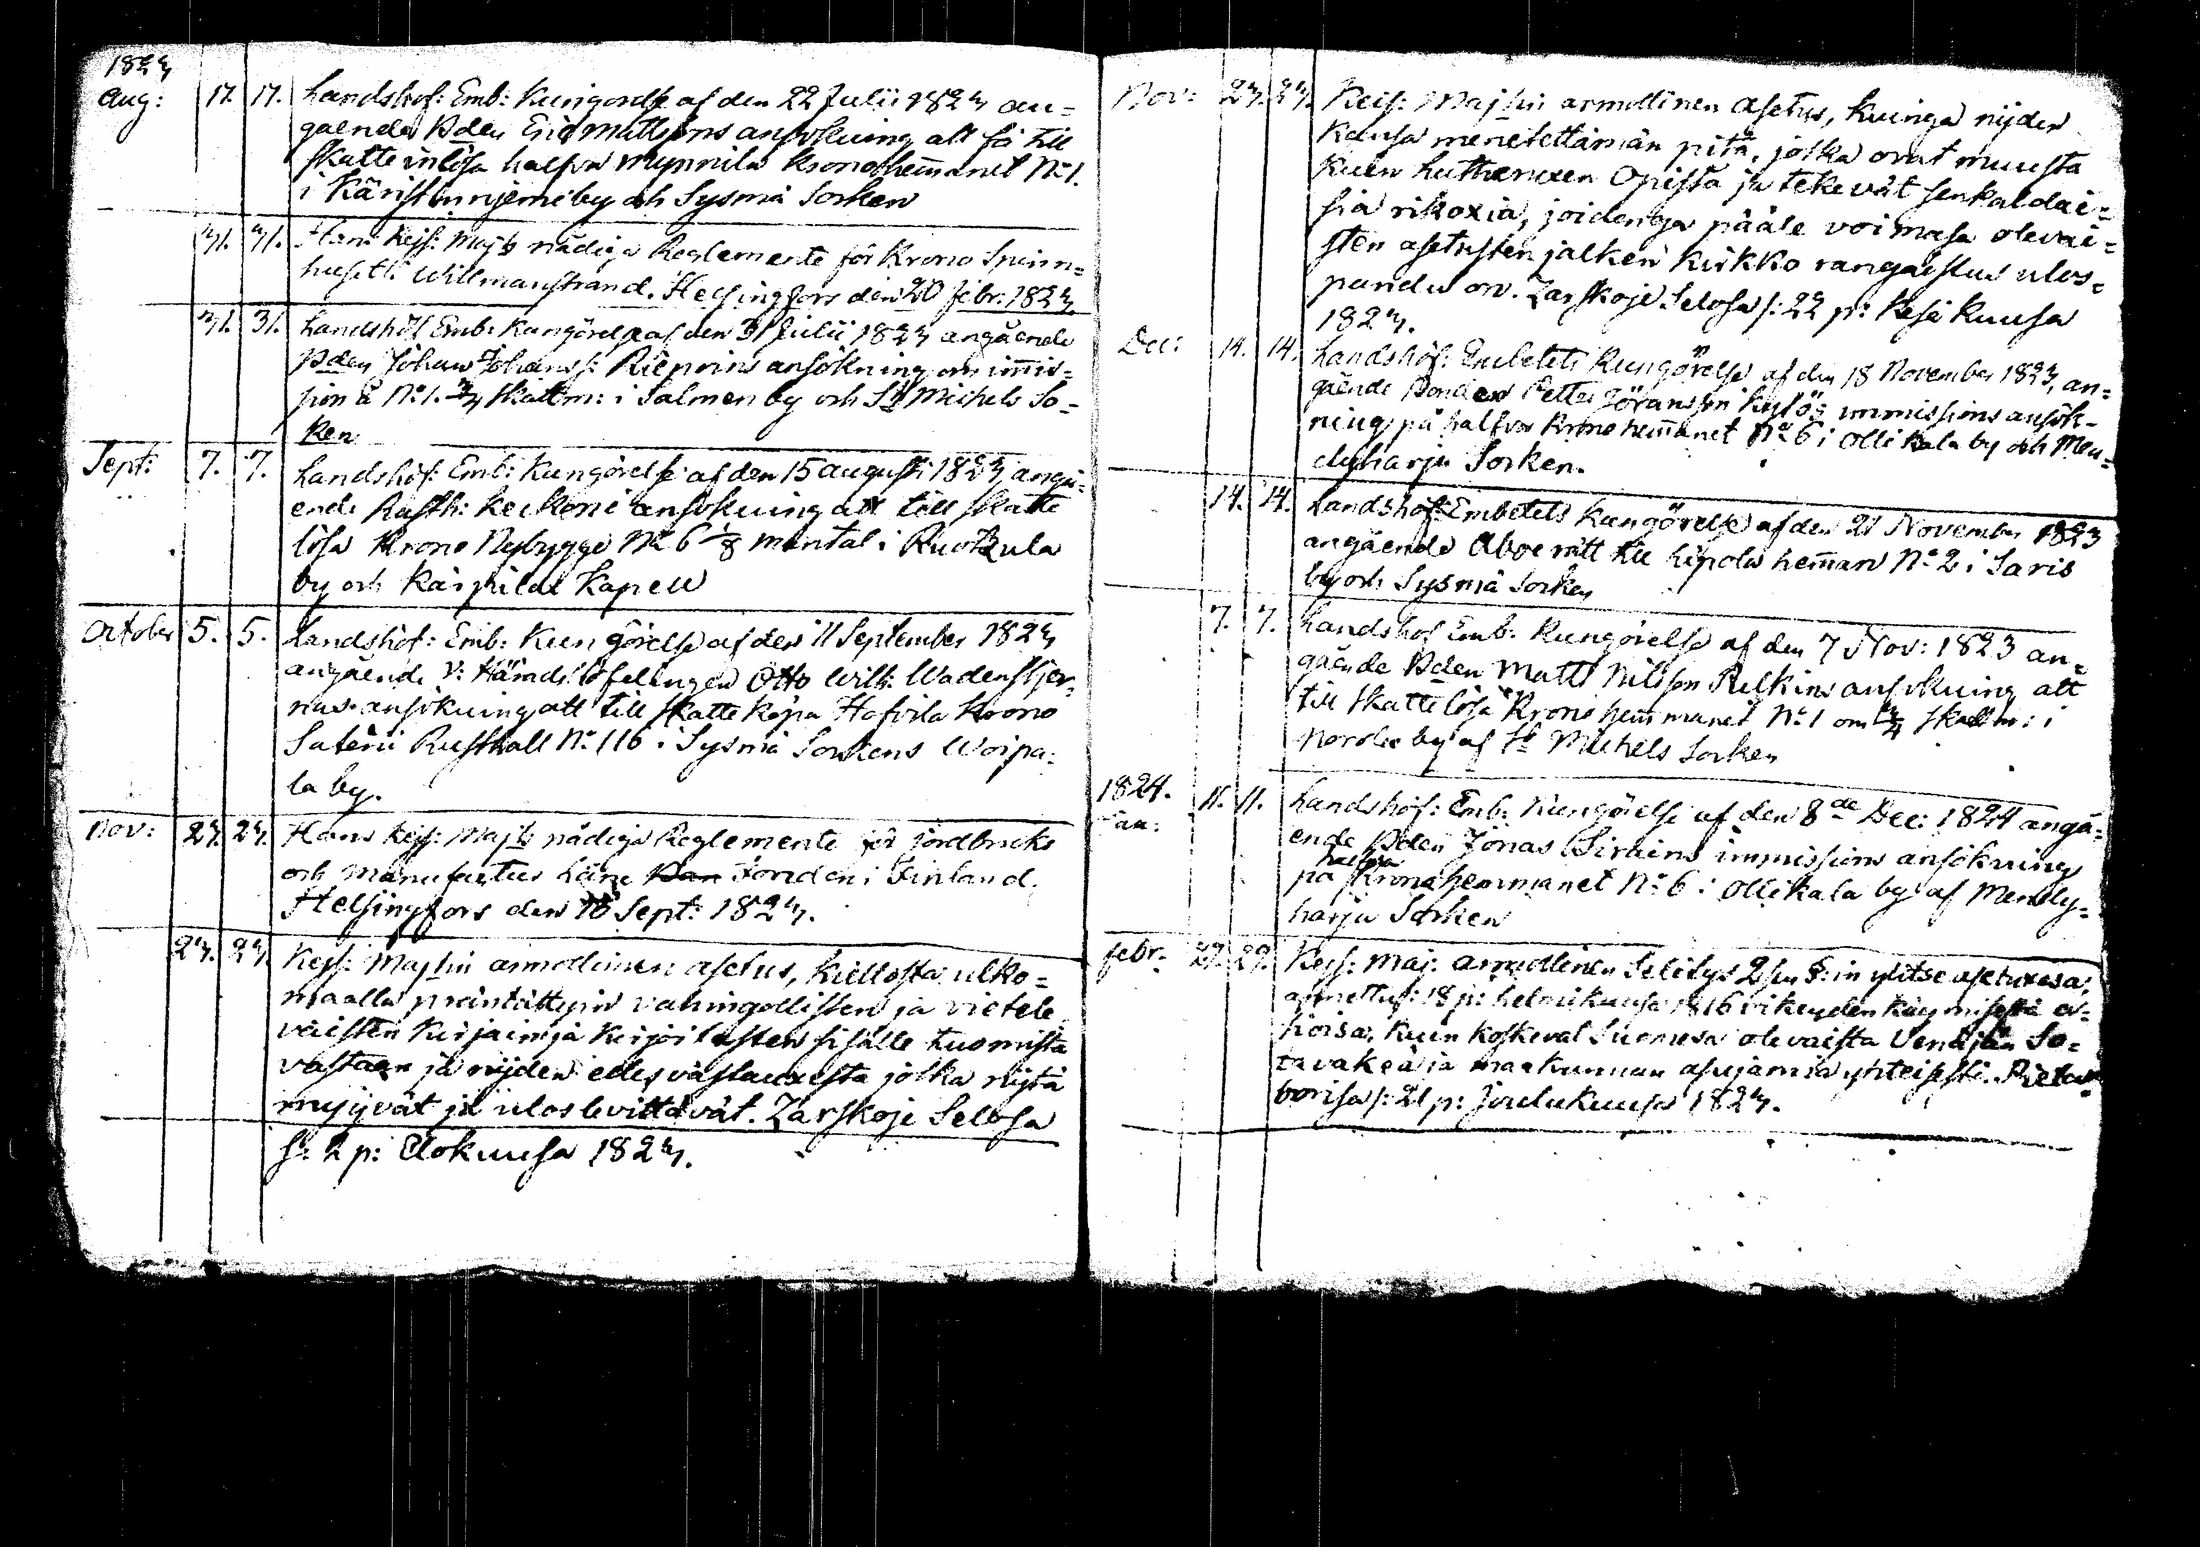 1823
Aug: 17. 17. Landshöf: Emb: Kungörelse af den 22 Julii 1823 an=
gaende Bden Eric Mattsons ansökning att få till
skatte inlösa halfva Mynnilä Kronohem̅anet N:o 1.
i Käristunniemi by och Sysmä Socken
31. 31. Hans Kejs: Maj:ts nådiga Reglemente för Krono Spinn=
huset i Willmanstrand. Helsingfors den 20 Febr: 1823.
31. 31. Landshöf Emb: Kungörelse af den 31 Julii 1823 angående
Bden Johan Johanss: Rieppins ansökning om im̅is=
sion å N:o 1. 3/4 skattm: i Salmen by och S:t Michels So=
ken
Sept: 7. 7. Landshöf: Emb: Kungörelse af den 15 Augusti 1823 angå=
ende Rusth: Keckoni ansökning att till skatte
lösa Krono Nybygge N:o 6 1/8 mantal i Ruotzula
by och Kärpilä Kapell
October 5. 5. Landshöf: Emb: Kungörelse af den 11 September 1823
angående V: Häradshöfdingen Otto Wilh: Wadenstjer=
nas ansökning att till skatte köpa Hofvila Krono
Säteri Rusthall N:o 116 i Sysmä Sockens Woipa=
la by.
Nov: 23. 23. Hans Kejs: Maj:ts nådiga Reglemente för jordbruks
och Manufactur Låne Fonden i Finland.
Helsingfors den 16 Sept: 1823.
23. 23. Kejs: Maj:tin armollinen asetus, kiellosta ulko=
maalla präntättyin vahingollisten ja vietele
väisten Kirjain ja Kirjoitusten sisälle tuomista
vastaan ja nijden edesvastauxesta jotka nijtä
myyvät ja ulos levittävät. Zarskoje Selosa
s: 2 p: Elokuusa 1823.
Nov: 23. 23. Keis: Maj:tin armollinen Asetus, kuinga nijden
kansa menetettämän pitä, jotka ovat muusta
kuin Lutheruxen Opista ja tekevät senkaldai=
sia rikoxia, joidenga pääle voimasa olevai=
sten asetusten jälken Kirkko rangaistus ulos=
pandu on. Zarskoje Selosa s: 22 p: Kesä Kuusa
1823.
Dec: 14. 14. Landshöf: Embetets Kungörelse af den 18 November 1823, an=
gående Bonden Petter Göransson Kylö: immissions ansök-
ning på halfva Krono hem̅anet N:o 6 i Ollikala by och Men=
dyharju Socken.
14. 14. Landshöf: Embetets Kungörelse af den 21 November 1823
angående Åboe rätt till hipola hem̅an N:o 2 i Saris
by och Sysmä Socken
7. 7. Landshöf Emb: Kungörelse af den 7 Nov: 1823 an=
gående Bden Matts Nilsson Pulkins ansökning att
till skatte lösa Krono hemmanet N:o 1 om 3/4 skattm: i
Norola by af S:t Michels Socken
1824.
Jan: 11. 11. Landshöf: Emb: Kungörelse af den 8de Dec: 1824 angå=
ende Bden Jonas Sirkins immissions ansökning
på halfva Kronohemmanet N:o 6 i Ollikala by af Mendy=
harju Socken
Febr. 29. 29. Kejs: Maj: armollinen Selitys 2:sen §:in ylitse asetuxesa,
annettu s: 18 p: helmikuusa 1816 rikeuden käymisestä a=
sioisa, kuin koskevat Suomesa olevaista Venäjän So=
taväkeä ja maakunnan asujamia yhteisesti. Pietar=
borisa s: 21 p: Joulukuusa 1823.